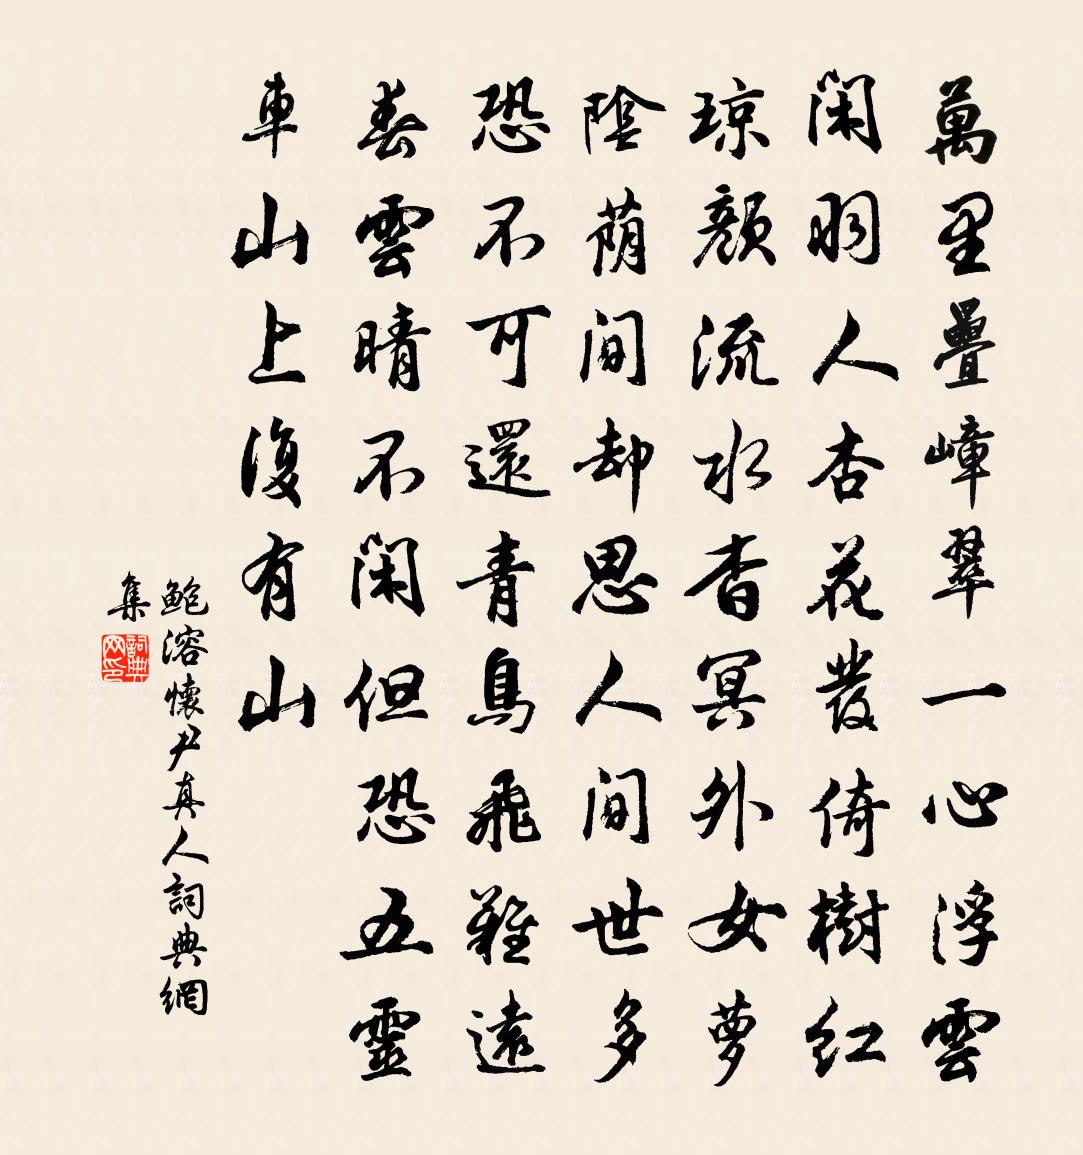 萬里疊嶂翠一心浮雲
閑羽人杏花發倚樹紅
琼顏流水杳冥外女萝
陰荫间却思人间世多
恐不可還青鳥飛難遠
春雲晴不閑但恐五靈
車山上復有山
鲍溶懷尹真人詞典網
集
詞典网印